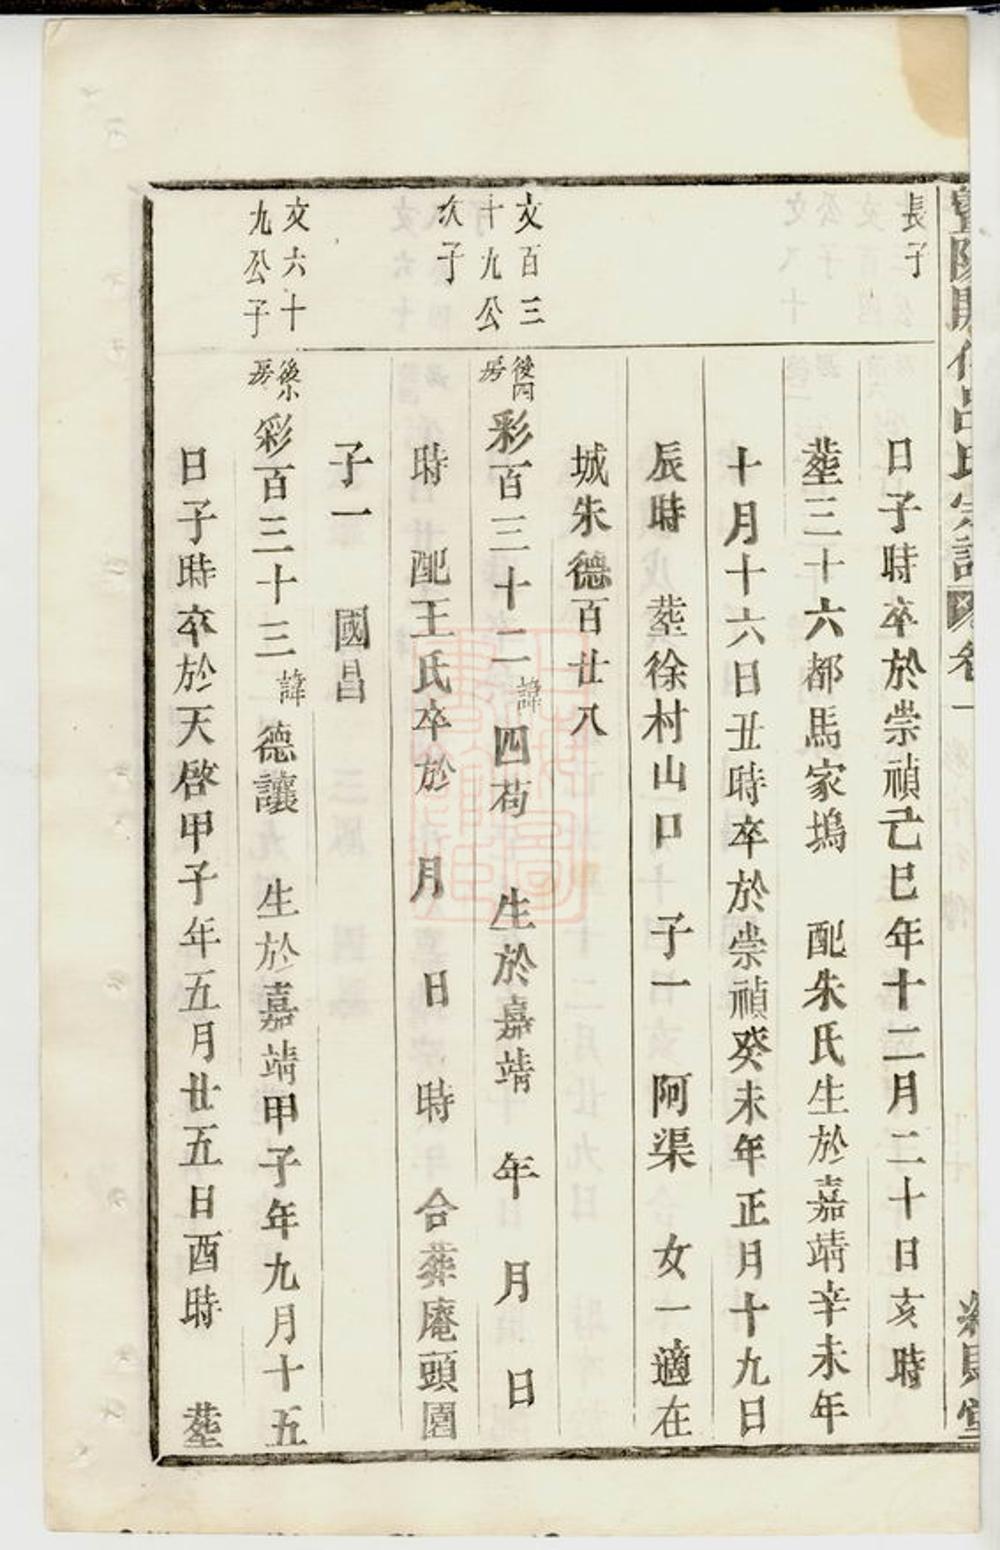 暨陽 呂氏宗譜 卷一
長子
日子時卒於崇禎己巳年十二月二十日亥時
塟三十六都馬家塢 配朱氏生於嘉靖辛未年
十月十六日丑時卒於崇禎癸未年正月十九日
辰時 塟徐村山口 子一 阿渠 女一適在
城朱德百廿八
文百三十九公次子
後四房 彩百三十二 諱四苟 生於嘉靖 年 月 日
時 配王氏卒於 月 日 時 合葬庵頭園
子一 國昌
文六十九公子
後小房 彩百三十三 諱德讓 生於嘉靖甲子年九月十五
日子時卒於天啓甲子年五月廿五日酉時 塟